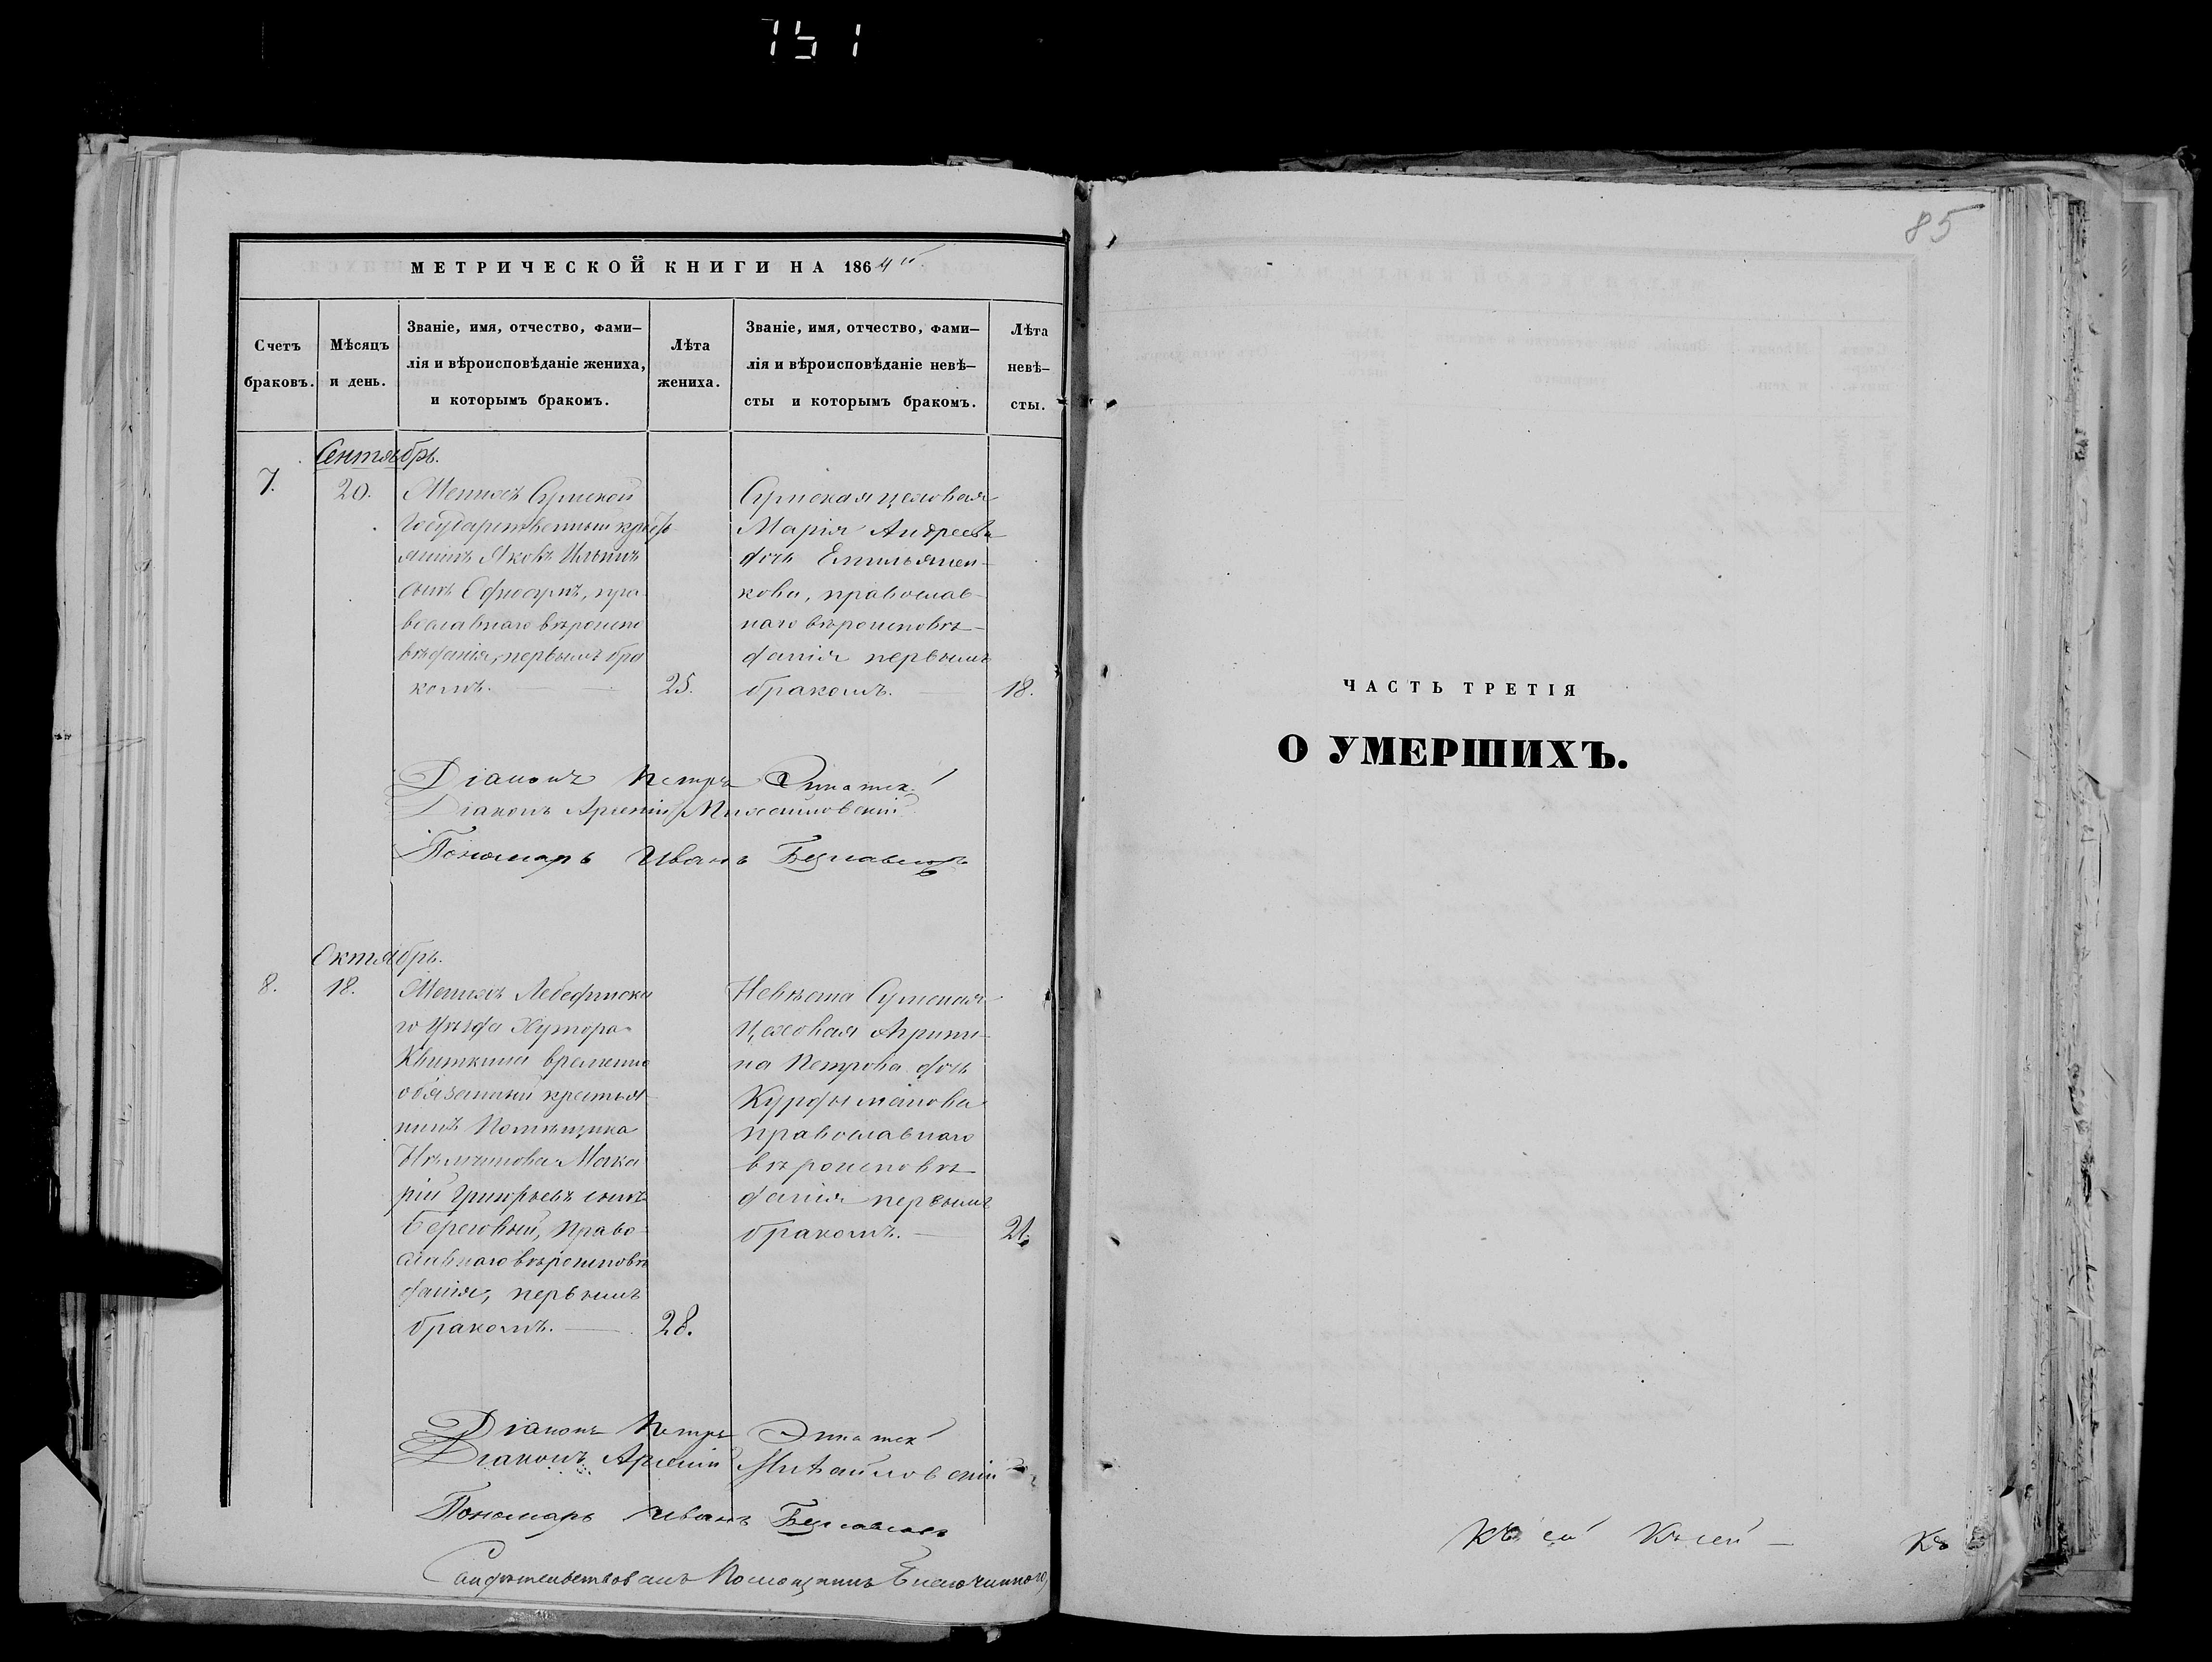 751
МЕТРИЧЕСКОЙ КНИГИ НА 1864й
Счетъ браковъ.
Мѣсяцъ и день.
Званіе, имя, отчество, фами-
лія и вѣроисповѣданіе жениха,
и которымъ бракомъ.
Лѣта жениха.
Званіе, имя, отчество, фами-
лія и вѣроисповѣданіе невѣ-
сты и которымъ бракомъ.
Лѣта невѣ-
сты.
Сентябрь.
7.
20.
Женихъ Сумской
Государственный кресть
янинъ Яковъ Ильинъ
сынъ пра
вославнаго вѣроиспо
вѣданія, первымъ бра
комъ.
25.
Сумская цеховая
Марія Андреева
дочь Емильянен-
кова, православ-
наго вѣроисповѣ-
данія первымъ
бракомъ.
18.
Діаконъ Петръ
Діаконъ Арсеній Михайловскій
Пономарь Иванъ
Октябрь.
8.
18.
Женихъ Лебединска
го Уѣзда Хутора
Квиткина временно
обязанный крестья
нинъ Помѣщика
Мака
рій Григорьевъ сынъ
Береговый, Право-
славнаго вѣроисповѣ
данія, первымъ
бракомъ.
28.
Невѣста Сумская
Цеховая Агрипи-
на Петрова дочь
православнаго
вѣроисповѣ
данія первымъ
бракомъ.
21.
Діаконъ Петръ
Діаконъ Арсеній Михайловскій
Пономарь Иванъ
Помощникъ Благочиннаго
85
ЧАСТЬ ТРЕТІЯ
О УМЕРШИХЪ.
Къ сей Къ сей
Къ